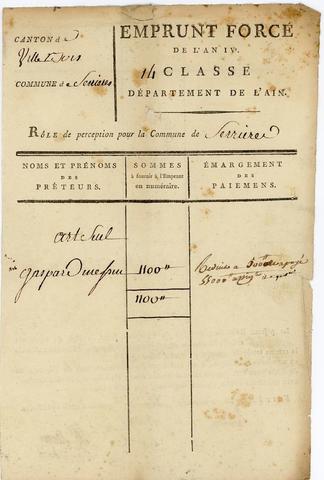 CANTON d
EMPRUNT FORCÉ
DE L'AN IV.
COMMUNE de Serrieres
14 CLASSE
DÉPARTEMENT DE L'AIN.
RÔLE de perception pour la Commune de Serrieres
NOMS ET PRÉNOMS
DES
PRÊTEURS.
SOMMES
à fournir à l'Emprunt
en numéraire.
ÉMARGEMENT
DES
PAIEMENS.
art seul
gaspard 1100"
1100"